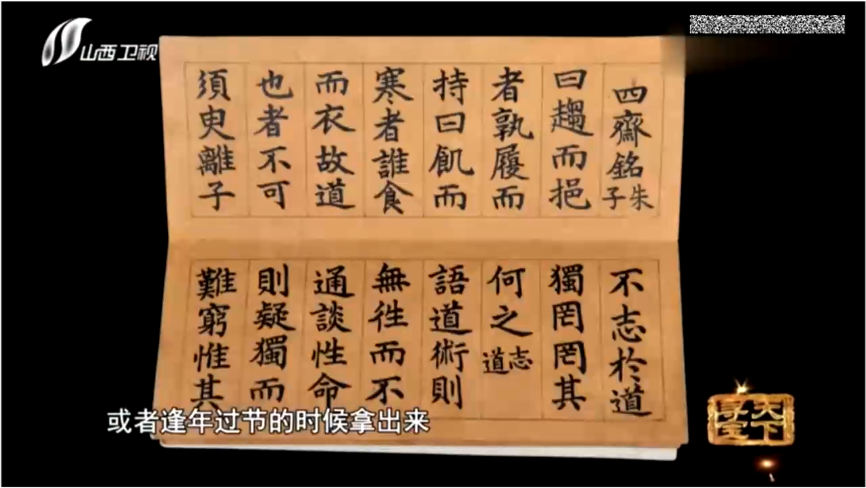 山西卫视
四齋銘朱子
曰趨而挹
者孰履而
持曰飢而
寒者誰食
而衣故道
也者不可
須臾離子
不志於道
獨罔罔其
何之志道
語道術則
無往而不
通談性命
則疑獨而
難窮惟其
或者逢年过节的时候拿出来
天下
寻宝